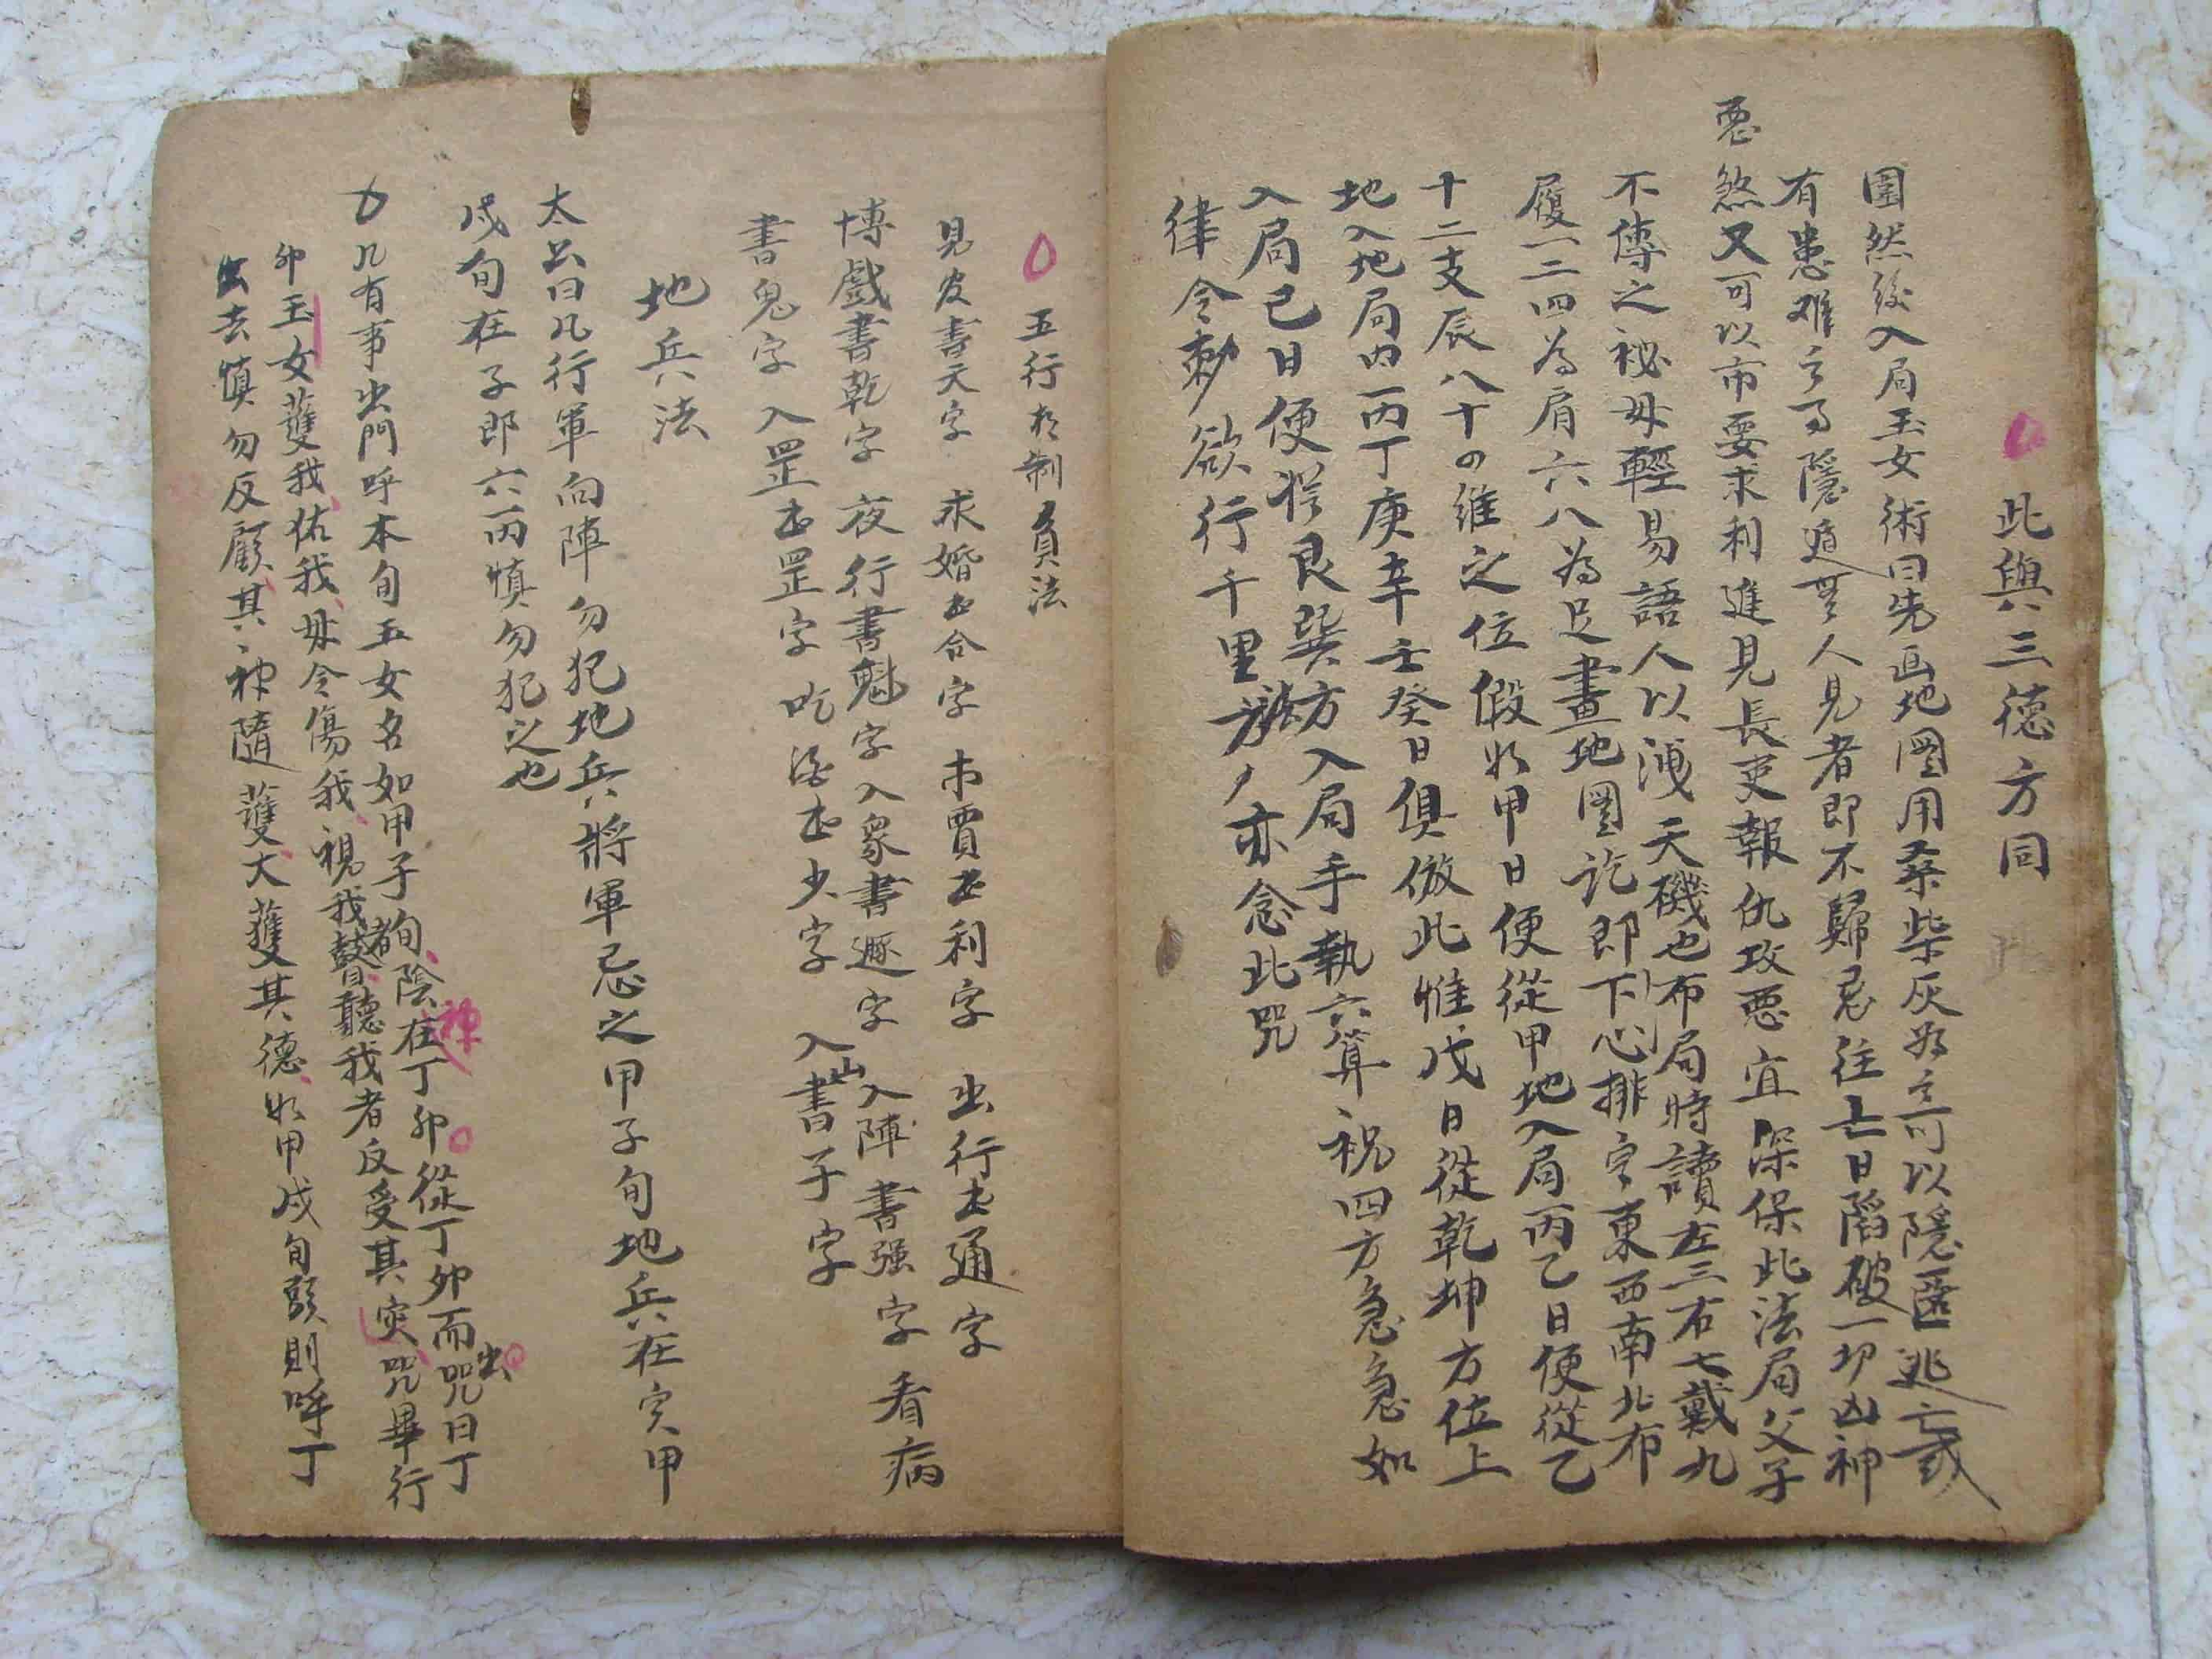 此與三德方同
圖然後入局玉女術曰先画地圖用桑柴灰為之可以隱匿逃亡或
有患难之可隱遁無人見者即不歸忌往亡日陷破一切凶神
惡煞又可以市要求利進見長吏報仇攻惡宜深保此法局父子
不傳之秘毋輕易語人以洩天磯也布局時讀左三右七戴九
履一二四為肩六八為足畫地圖訖即下心排字東西南北布
十二支辰八十四維之位假如甲日便從甲地入局丙乙日便從乙
地入地局内一丙丁庚辛壬癸日俱倣此惟戊日從乾坤方位上
入局己日便從艮巽方入局手執六算祝四方急急如
律令勅欲行千里亦念此咒
五行相制負法
見官書天字 求婚书合字 市賈书利字 出行书通字
博戲書乾字 夜行書魁字入眾書遯字 入陣書强字 看病
書鬼字 入罡书罡字 吃酒书少字 入山書子字
地兵法
太公曰凡行軍向陣勿犯地兵將軍忌之甲子旬地兵在寅甲
戌旬在子即六丙慎勿犯之也
凡有事出門呼本旬玉女名如甲子旬陰神在丁卯從丁卯而出咒曰丁
卯玉女護我佑我毋令傷我視我者瞽聽我者反受其災咒畢行
出去慎勿反顧其神隨護大護其德如甲戌旬頭則呼丁